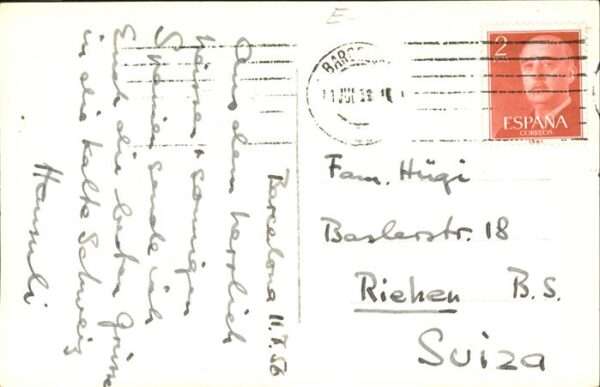 Barcelona 11.7.56
Aus dem herrlich
heissen + sonnigen
Spanien sende ich
Euch die besten Grüsse
in die kalte Schweiz
Hansuli
2
ESPAÑA
CORREOS
Fam. Hügi
Baslerstr. 18
Riehen B.S.
Suiza